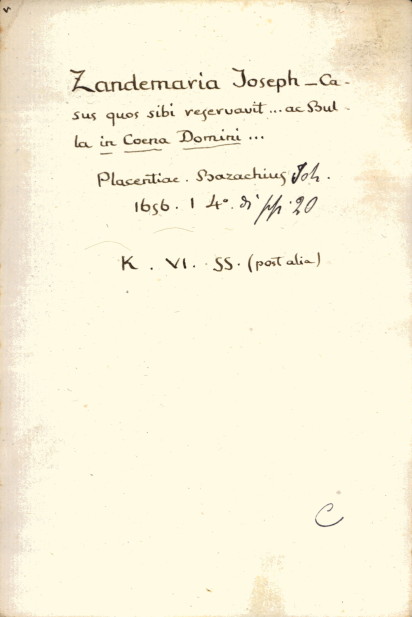 Zandemaria Joseph – Ca-
sus quos sibi reservavit ... ac Bul-
la in Coena Domini ...
Placentiae. Bazachius Joh.
1656. 1 4°. di pp. 20
K. VI. 55. (post alia)
C